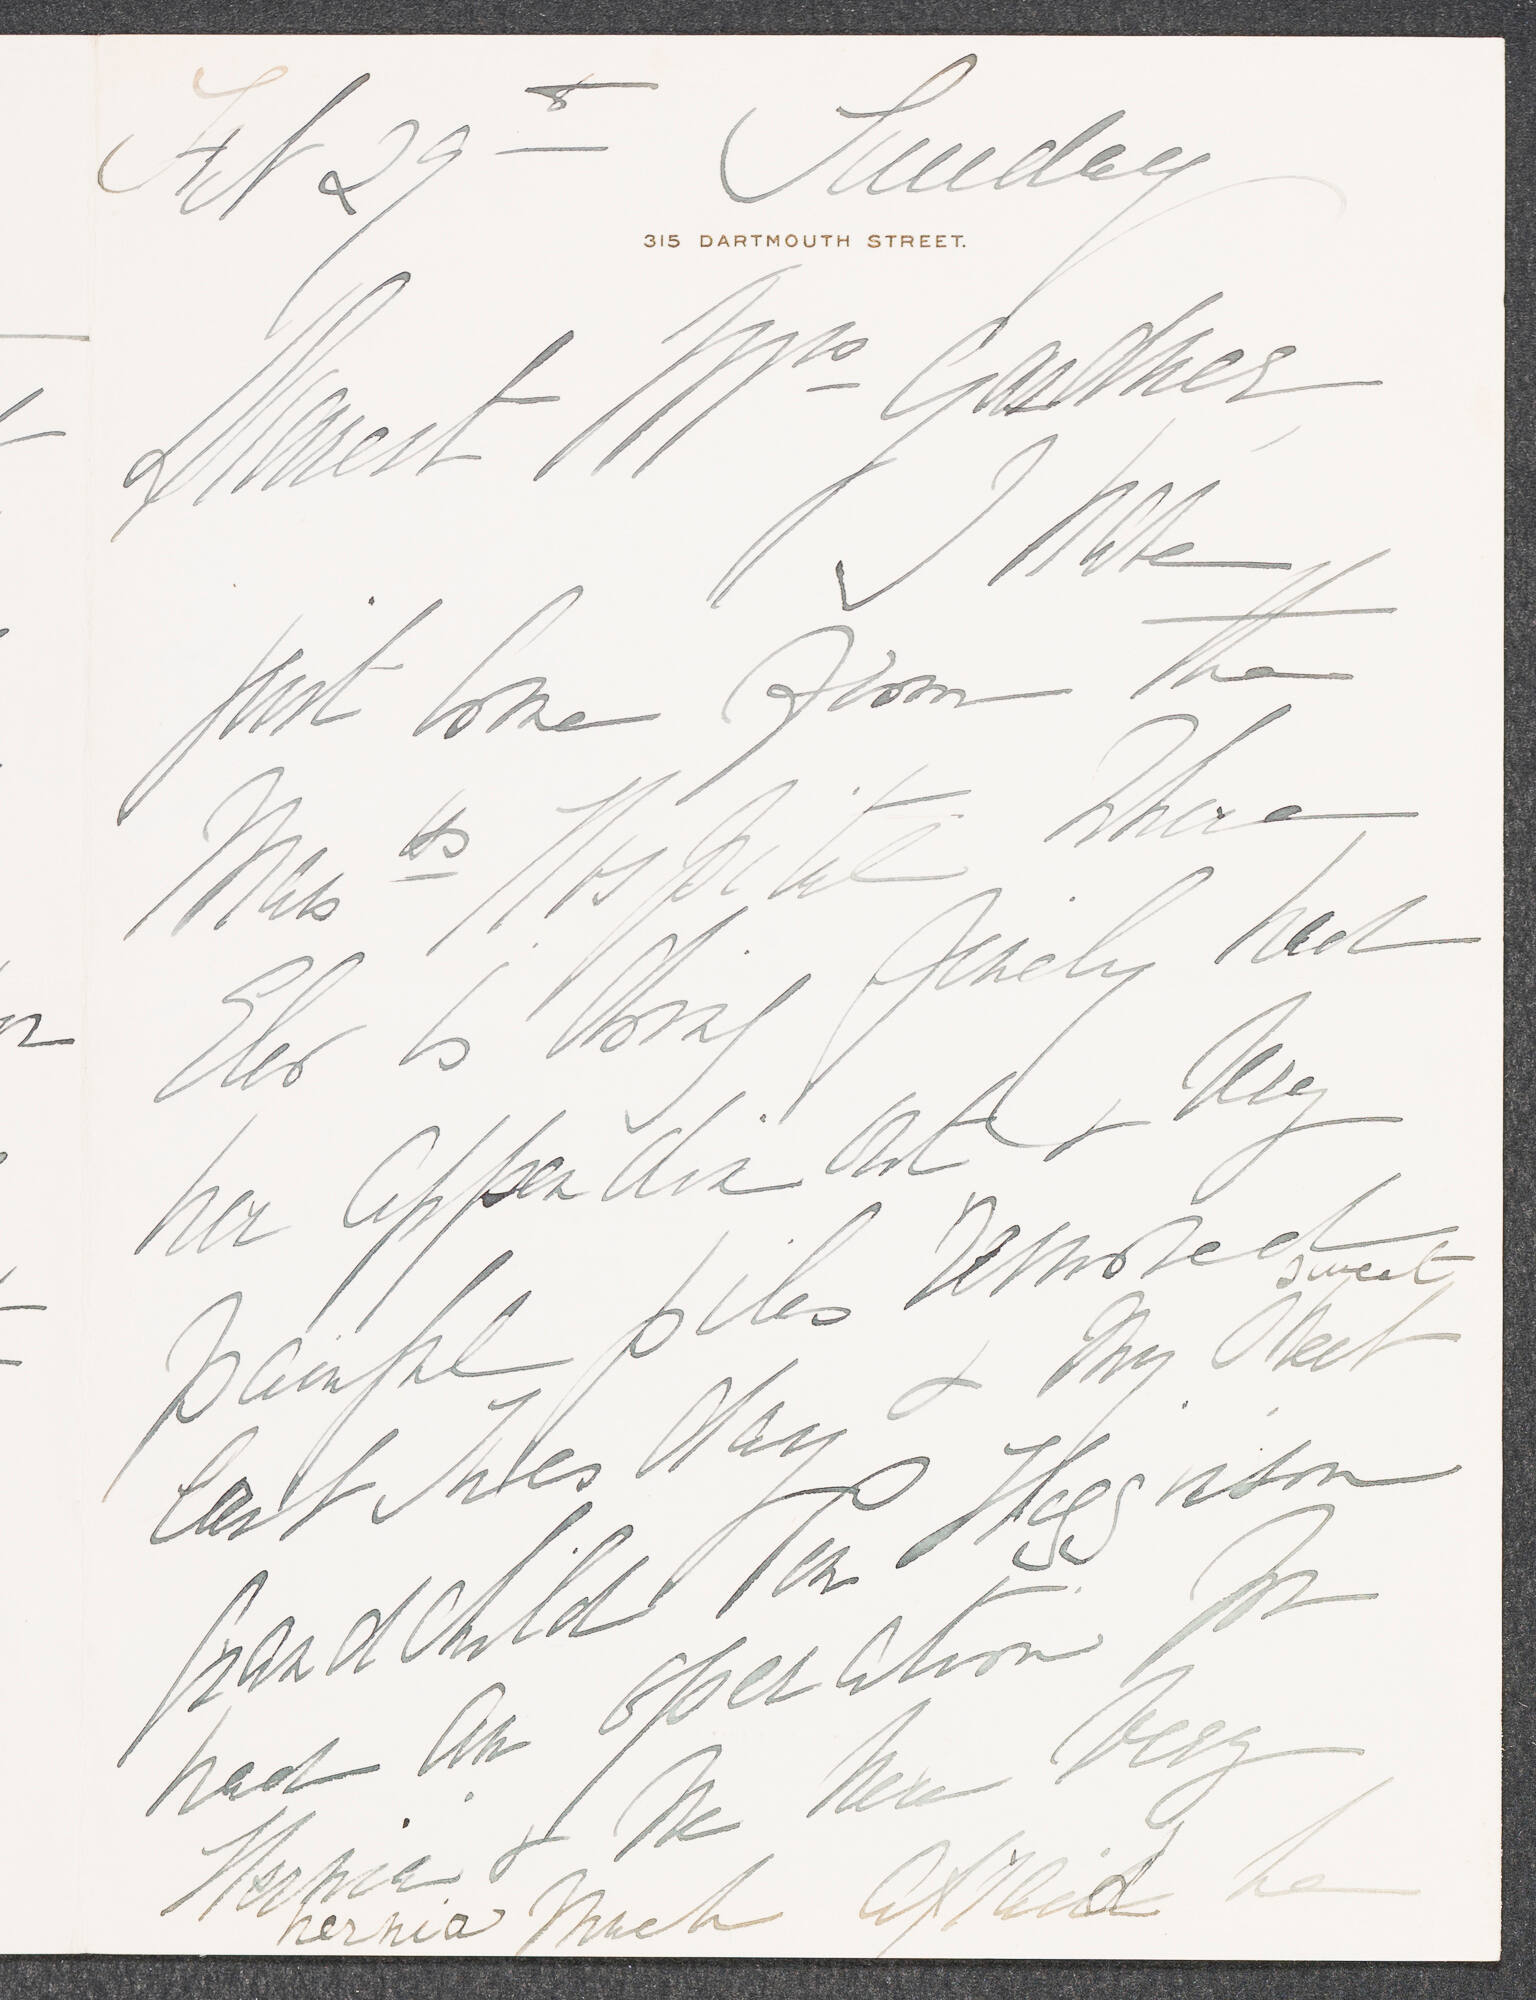 Feb 29th Sunday
315 DARTMOUTH STREET.
Dearest Mrs Gardner,
I have
just come from the
Mass ts Hospital where
Eleo is doing finely had
her appendix out & very
painful piles removed
sweet
last Tuesday & my sweet
grandchild Higginson
had an operation for
Hernia & we were very
hernia much afraid he